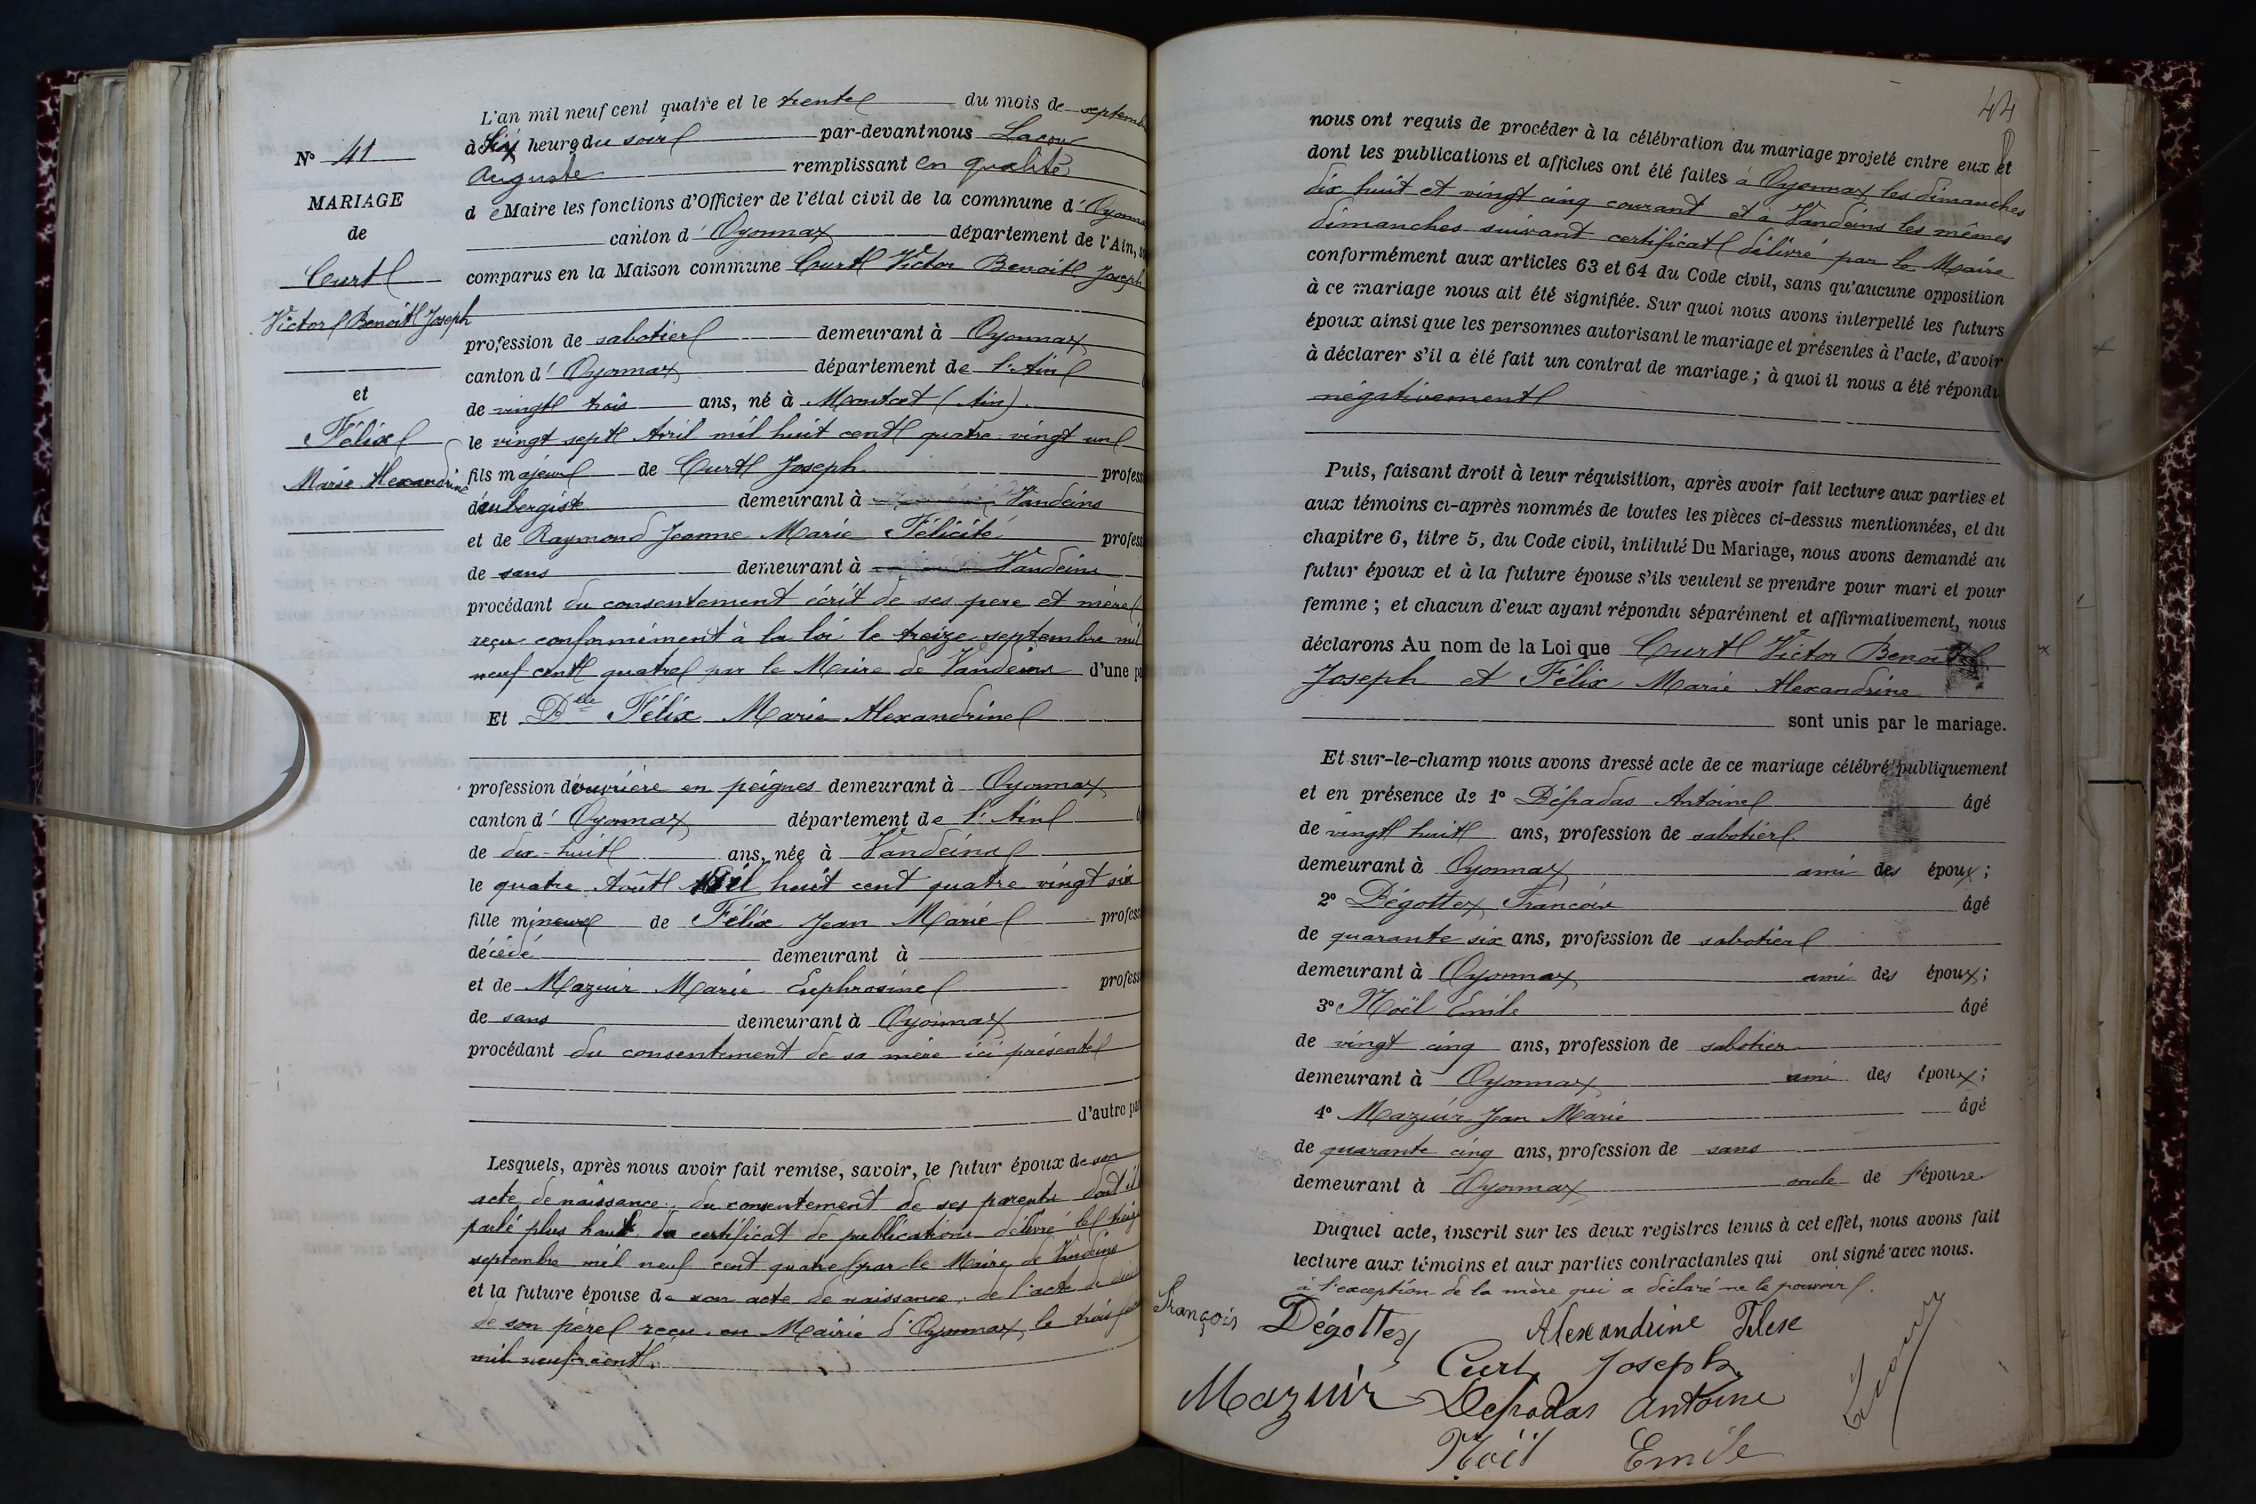 L'an mil neuf cent quatre et le trente du mois de septemb
à Six heures du soir par-devant nous Lacou
Auguste remplissant en qualité
de Maire les fonctions d'Officier de l'état civil de la commune d'Oyonna
canton d'Oyonnax département de l'Ain, s
comparus en la Maison commune Curt Victor Benoit Joseph
N° 41
MARIAGE
de
Curt
Victor Benoit Joseph
et
Félix
Marie Alexandrine
profession de sabotier demeurant à Oyonnax
canton d'Oyonnax département de l'Ain
de vingt trois ans, né à Montcet (Ain)
le vingt sept Avril mil huit cent quatre-vingt un
fils majeur de Curt Joseph profess
d'aubergiste demeurant à Vandeins
et de Raymond Jeanne Marie Félicité profess
de sans demeurant à Vandeins
procédant du consentement écrit de ses père et mère
reçu conformément à la loi le treize septembre mil
neuf cent quatre par le Maire de Vandeins d'une pa
Et Dlle Félix Marie Alexandrine
profession d'ouvrière en peignes demeurant à Oyonnax
canton d'Oyonnax département de l'Ain
de dix-huit ans, née à Vandeins
le quatre Août Mil huit cent quatre vingt six
fille mineure de Félix Jean Marie profess
décédé demeurant à
et de Mazuir Marie Euphrosine profess
de sans demeurant à Oyonnax
procédant du consentement de sa mère ici présente
d'autre par
Lesquels, après nous avoir fait remise, savoir, le futur époux de son
acte de naissance; du consentement de ses parents dont il
parlé plus haut du certificat de publications délivré le treize
septembre mil neuf cent quatre par le Maire de Vandeins
et la future épouse de son acte de naissance, de l'acte de
de son père reçu en Mairie d'Oyonnax, le trois
mil neuf cent
44
nous ont requis de procéder à la célébration du mariage projeté entre eux et
dont les publications et affiches ont été faites à Oyonnax les dimanches
dix huit et vingt cinq courant et à Vandeins les mêmes
dimanches suivant certificat délivré par le Maire
conformément aux articles 63 et 64 du Code civil, sans qu'aucune opposition
à ce mariage nous ait été signifiée. Sur quoi nous avons interpellé les futurs
époux ainsi que les personnes autorisant le mariage et présentes à l'acte, d'avoir
à déclarer s'il a été fait un contrat de mariage; à quoi il nous a été répondu
négativement
Puis, faisant droit à leur réquisition, après avoir fait lecture aux parties et
aux témoins ci-après nommés de toutes les pièces ci-dessus mentionnées, et du
chapitre 6, titre 5, du Code civil, intitulé Du Mariage, nous avons demandé au
futur époux et à la future épouse s'ils veulent se prendre pour mari et pour
femme; et chacun d'eux ayant répondu séparément et affirmativement, nous
déclarons Au nom de la Loi que Curt Victor Benoit
Joseph et Félix Marie Alexandrine
sont unis par le mariage.
Et sur-le-champ nous avons dressé acte de ce mariage célébré publiquement
et en présence de 1° Défradas Antoine âgé
de vingt huit ans, profession de sabotier
demeurant à Oyonnax ami des époux;
2° Dégottex François âgé
de quarante six ans, profession de sabotier
demeurant à Oyonnax ami des époux;
3° Noël Emile âgé
de vingt cinq ans, profession de sabotier
demeurant à Oyonnax ami des époux;
4° Mazuir Jean Marie âgé
de quarante cinq ans, profession de sans
demeurant à Oyonnax oncle de l'épouse
Duquel acte, inscrit sur les deux registres tenus à cet effet, nous avons fait
lecture aux témoins et aux parties contractantes qui ont signé avec nous.
à l'exception de la mère qui a déclaré ne le pouvoir.
François Dégottex Alexandrine Felix
Curt Joseph
Mazuir Defradas Antoine
Noël Emile